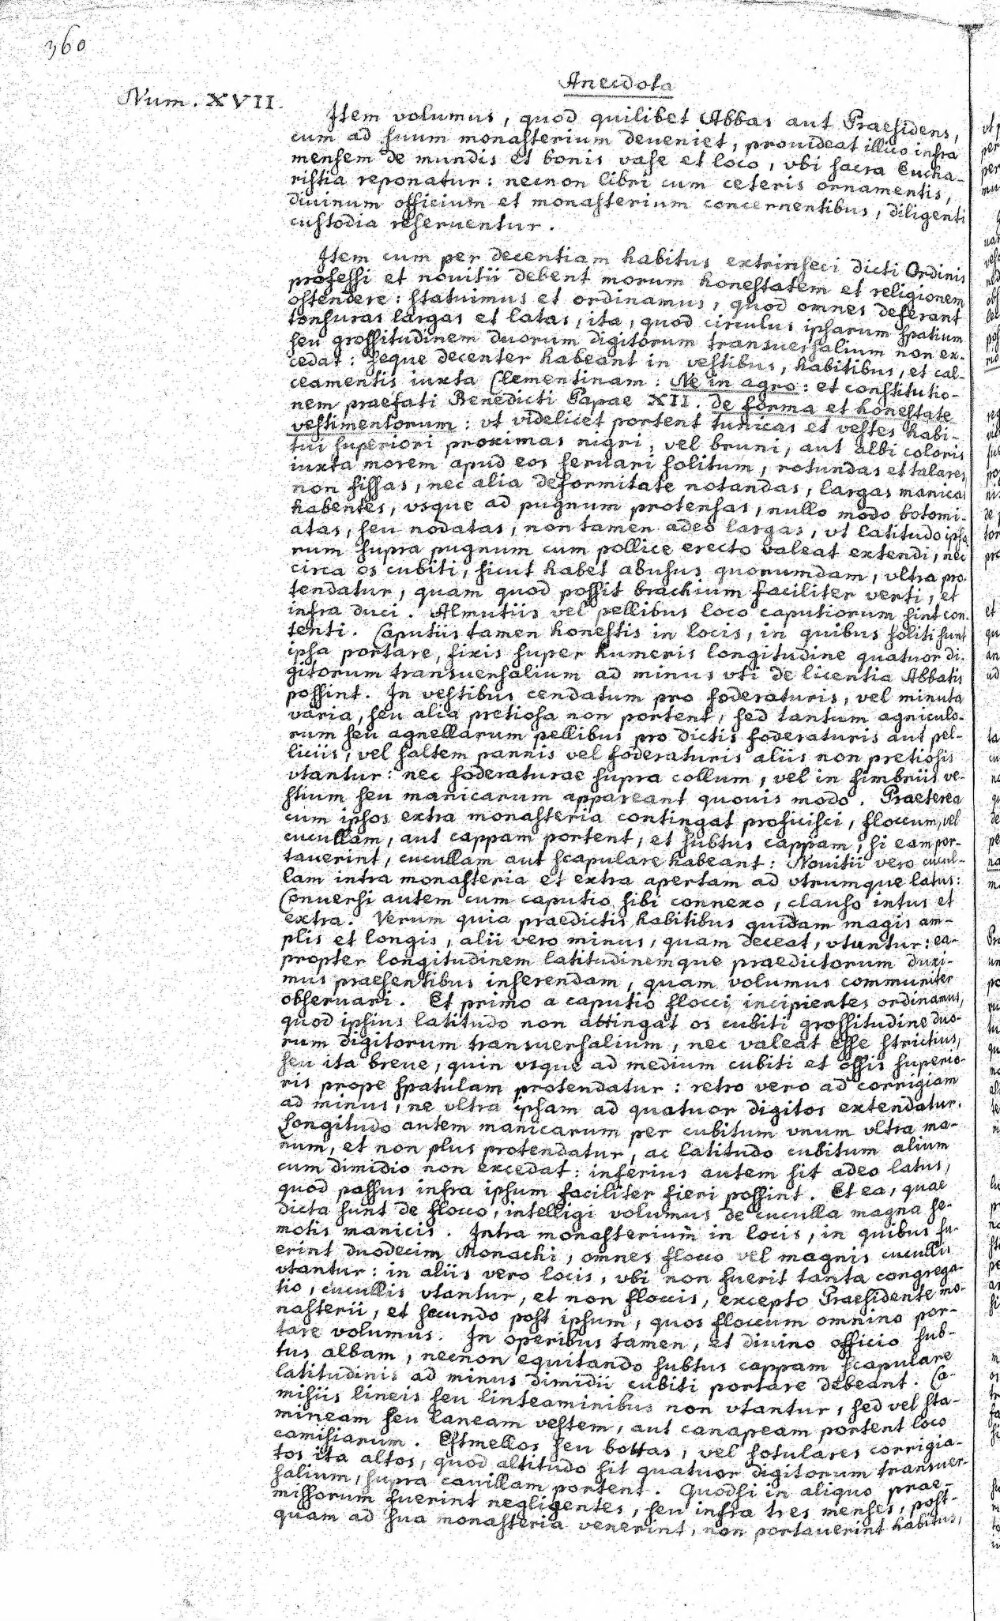 360
Anecdota
Num. XVII.
Item volumus, quod quilibet Abbas aut Praesidens,
cum ad suum monasterium deueniet, prouideat illico infra
mensem de mundis et bonis vase et loco, vbi sacra Eucha-
ristia reponatur: necnon libri cum ceteris ornamentis,
diuinum officium et monasterium concernentibus, diligenti
custodia reseruentur.
Item cum per decentiam habitus extrinseci dicti Ordinis
professi et nouitii debent morum honestatem et religionem
ostendere: statuimus et ordinamus, quod omnes deferant
tonsuras largas et latas, ita, quod circulus ipsarum spatium
seu grossitudinem duorum digitorum transuersalium non ex-
cedat: seque decenter habeant in vestibus, habitibus, et cal-
ceamentis iuxta Clementinam: Ne in agro: et constitutio-
nem praefati Benedicti Papae XII. de forma et honestate
vestimentorum: vt videlicet portent tunicas et vestes habi-
tui superiori proximas nigri, vel bruni, aut albi coloris
iuxta morem apud eos seruari solitum, rotundas et talares
non fissas, nec alia deformitate notandas, largas manicas
habentes, vsque ad pugnum protensas, nullo modo botoni-
atas, seu nodatas, non tamen adeo largas, vt latitudo ipsa
rum supra pugnum cum pollice erecto valeat extendi, nec
circa os cubiti, sicut habet abusus quorumdam, vltra pro-
tendatur, quam quod possit brachium faciliter verti, et
infra duci. Almutiis vel pellibus loco caputiorum sint con-
tenti. Caputiis tamen honestis in locis, in quibus soliti sunt
ipsa portare, fixis super humeris longitudine quatuor di-
gitorum transuersalium ad minus vti de licentia Abbatis
possint. In vestibus cendatum pro foderaturis, vel minuta
varia, seu alia pretiosa non portent, sed tantum agniculo-
rum seu agnellarum pellibus pro dictis foderaturis aut pel-
liciis, vel saltem pannis vel foderaturis aliis non pretiosis
vtantur: nec foderaturae supra collum, vel in fimbriis ve-
stium seu manicarum appareant quouis modo. Praeterea
cum ipsos extra monasteria contingat proficisci, floccum, vel
cucullam, aut cappam portent, et subtus cappam, si eam por-
tauerint, cucullam aut scapulare habeant: Nouitii vero cucul-
lam intra monasteria et extra apertam ad vtrumque latus:
Conuersi autem cum caputio sibi connexo, clauso intus et
extra. Verum quia praedictis habitibus quidam magis am-
plis et longis, alii vero minus, quam deceat, vtuntur: ea-
propter longitudinem latitudinemque praedictorum duxi-
mus praesentibus inserendam, quam volumus communiter
obseruari. Et primo a caputio flocci incipientes ordinamus,
quod ipsius latitudo non attingat os cubiti grossitudine duo-
rum digitorum transuersalium, nec valeat esse strictius,
seu ita breue, quin vsque ad medium cubiti et ossis superio-
ris prope spatulam protendatur: retro vero ad corrigiam
ad minus, ne vltra ipsam ad quatuor digitos extendatur.
Longitudo autem manicarum per cubitum vnum vltra ma-
num, et non plus protendatur, ac latitudo cubitum alium
cum dimidio non excedat: inferius autem sit adeo latus,
quod passus infra ipsum faciliter fieri possint. Et ea, quae
dicta sunt de flocco, intelligi volumus de cuculla magna se-
motis manicis. Intra monasterium in locis, in quibus fu-
erint duodecim Monachi, omnes flocco vel magnis cucullis
vtantur: in aliis vero locis, vbi non fuerit tanta congrega-
tio, cucullis vtantur, et non floccis, excepto Praesidente mo-
nasterii, et secundo post ipsum, quos floccum omnino por-
tare volumus. In operibus tamen, et diuino officio sub-
tus albam, necnon equitando subtus cappam scapulare
latitudinis ad minus dimidii cubiti portare debeant. Ca-
misiis lineis seu linteaminibus non vtantur, sed vel sta-
mineam seu laneam vestem, aut canapeam portent loco
camisiarum. Estmellos seu bottas, vel sotulares corrigia-
tos ita altos, quod altitudo sit quatuor digitorum transuer-
salium, supra cauillam portent. Quodsi in aliquo prae-
missorum fuerint negligentes, seu infra tres menses, post-
quam ad sua monasteria venerint, non portauerint habitus,